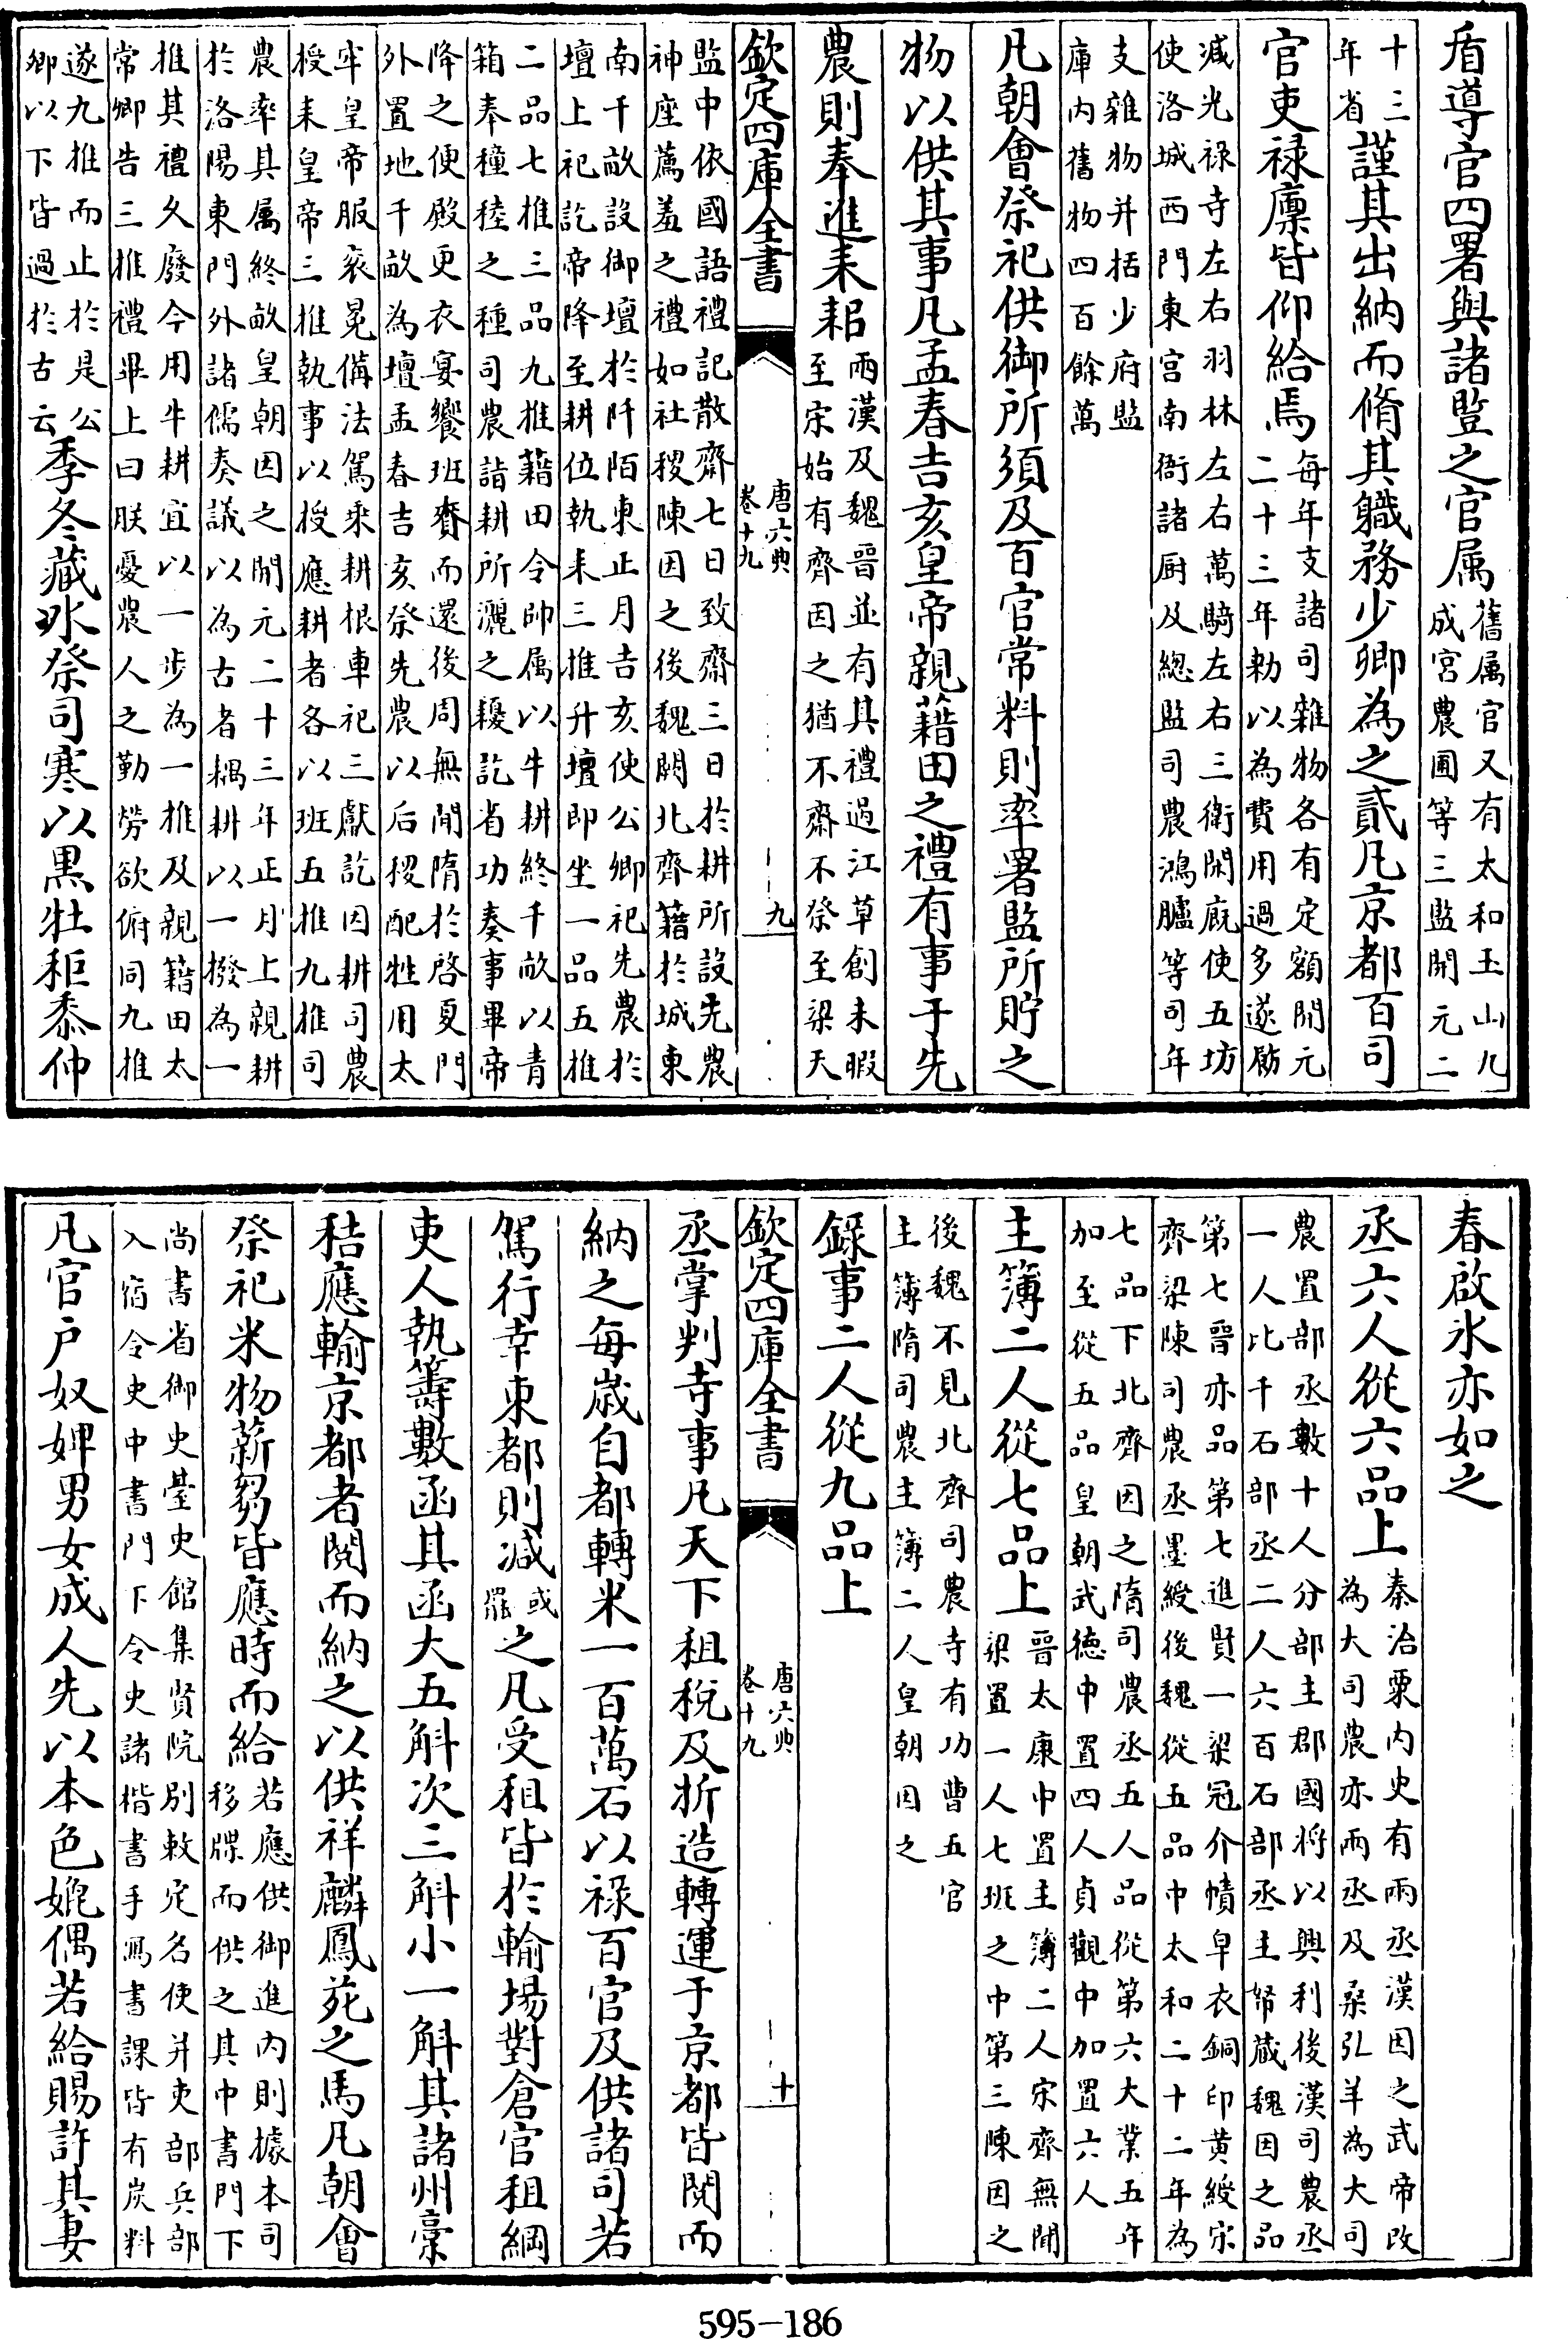 𥄂導官四署與諸監之官属舊属官又有太和玉山九成宮農圃等三監開元二
十三年省謹其出納而脩其軄務少卿為之貳凡京都百司
官吏祿廩皆仰給焉每年支諸司雜物各有定額開元二十三年勅以為費用過多遂勵
减光祿寺左右羽林左右萬騎左右三衛閑厩使五坊使洛城西門東宮南衙諸厨及總監司農鴻臚等司年
支雜物并括少府監庫内舊物四百餘萬
凡朝會祭祀供御所須及百官常料則率署監所貯之
物以供其事凡孟春吉亥皇帝親藉田之禮有事于先
農則奉進耒耜兩漢及魏晉並有其禮過江草創未暇至宋始有齊因之猶不齋不祭至梁天
欽定四庫全書
唐六典
卷十九
九
監中依國語禮記散齋七日致齋三日於耕所設先農神座薦羞之禮如社稷陳因之後魏闕北齊藉於城東
南千畝設御壇於阡陌東止月吉亥使公卿祀先農於壇上祀訖帝降至耕位執耒三推升壇即坐一品五推
二品七推三品九推藉田令帥属以牛耕終千畝以青箱奉穜稑之種司農詣耕所灑之耰訖省功奏事畢帝
降之便殿更衣宴饗班賚而還後周無聞隋於啓夏門外置地千畝為壇孟春吉亥祭先農以后稷配牲用太
牢皇帝服衮冕備法駕乘耕根車祀三獻訖因耕司農授耒皇帝三推執事以授應耕者各以班五推九推司
農率其属終畝皇朝因之開元二十三年正月上親耕於洛陽東門外諸儒奏議以為古者耦耕以一撥為一
推其禮久廢今用牛耕宜以一步為一推及親籍田太常卿告三推禮畢上曰朕憂農人之勤勞欲俯同九推
遂九推而止於是公卿以下皆過於古云季冬藏冰祭司寒以黒牡秬黍仲
春啟氷亦如之
丞六人從六品上秦治粟内史有兩丞漢因之武帝改為大司農亦兩丞及桑弘羊為大司
農置部丞數十人分部主郡國將以興利後漢司農丞一人比千石部丞二人六百石部丞主帑藏魏因之品
第七晉亦品第七進賢一梁冠介幘皁衣銅印黄綬宋齊梁陳司農丞墨綬後魏從五品中太和二十二年為
七品下北齊因之隋司農丞五人品從第六大業五年加至從五品皇朝武德中置四人貞觀中加置六人
主簿二人從七品上晉太康中置主簿二人宋齊無聞梁置一人七班之中第三陳因之
後魏不見北齊司農寺有功曹五官主簿隋司農主簿二人皇朝因之
錄事二人從九品上
欽定四庫全書
唐六典
卷十九
十
丞掌判寺事凡天下租稅及折造轉運于京都皆閱而
納之每歲自都轉米一百萬石以祿百官及供諸司若
駕行幸東都則减或罷之凡受租皆於輸場對倉官租綱
吏人執籌數函其函大五斛次三斛小一斛其諸州藁
秸應輸京都者閱而納之以供祥麟鳳苑之馬凡朝會
祭祀米物薪芻皆應時而給若應供御進内則據本司移牒而供之其中書門下
尚書省御史臺史館集賢院別敕定名使并吏部兵部入宿令史中書門下令史諸楷書手寫書課皆有炭料
凡官户奴婢男女成人先以本色媲偶若給賜許其妻
595-186